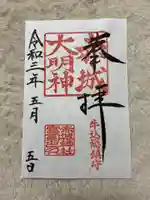 牛込総鎮守
奉拝
赤城
大明神
令和三年 五月 五日